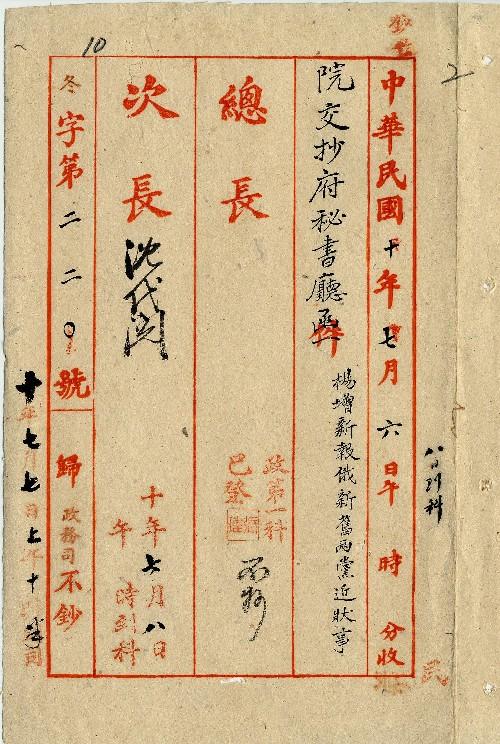 2
八日到科
中華民國十年七月六日午 時 分收
院交抄府秘書廳函 件
楊增新報俄新舊兩黨近狀事
總長
政第一科
已登
次長 沈代閱
十年七月八日
午 時到科
10
冬字第二二〇號 歸政務司不鈔
十年七月七日上午十